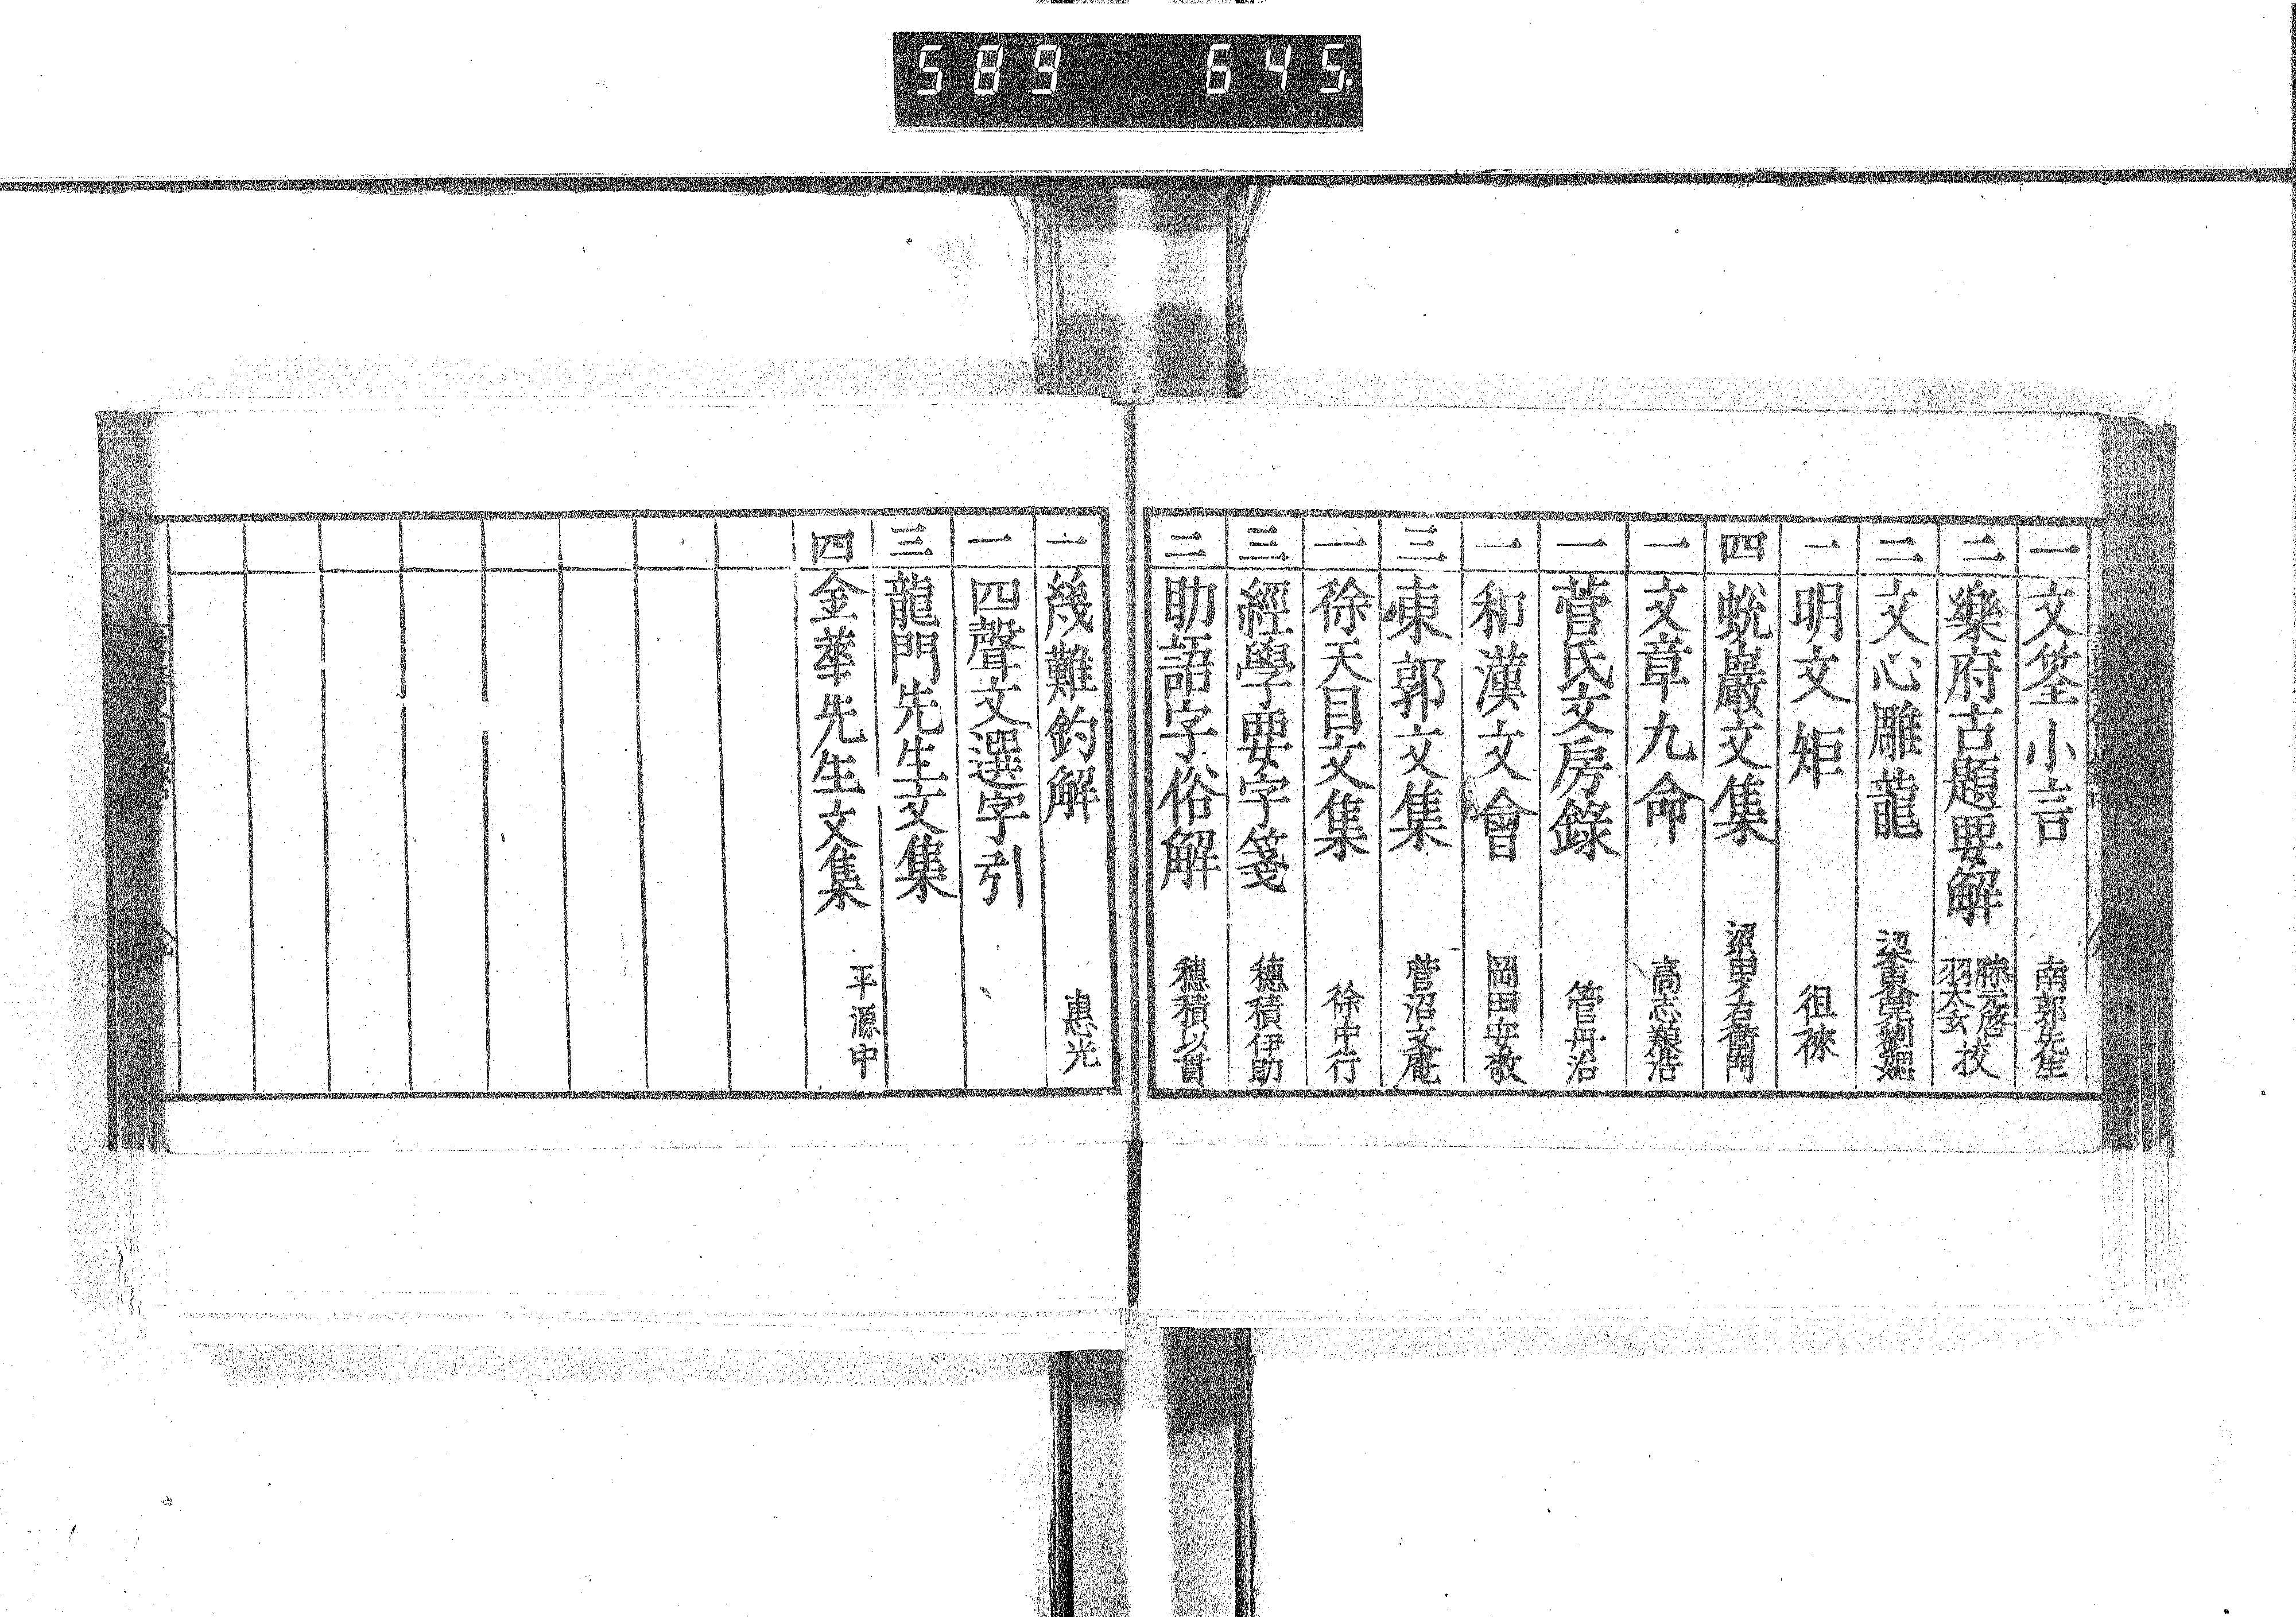 589 645.
一 文筌小言 南郭先生
二 樂府古題要解 滕元啓 羽太玄 校
二 文心雕龍 梁東莞劉勰
一 明文矩 徂徠
四 蛻巖文集 梁田才右衞門
一 文章九命 高志頴浩
一 菅氏文房錄 管丹治
一 和漢文會 岡田安敬
三 東郭文集 菅沼文庵
一 徐天目文集 徐中行
三 經學要字箋 穗積伊助
三 助語字俗解 穗積以貫
一 幾難釣解 惠光
一 四聲文選字引
三 龍門先生文集
四 金華先生文集 平源中